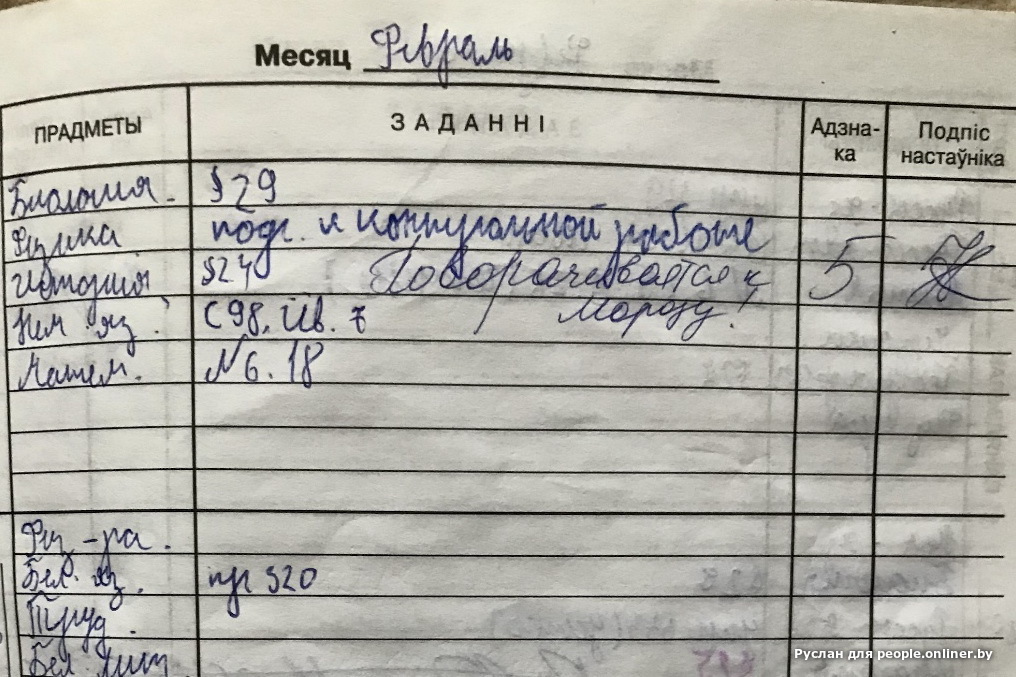 Месяц Февраль
ПРАДМЕТЫ ЗАДАННІ Адзна- Подпіс
ка настаўніка
Биология. §29
Физика подг. к контрольной работе
История §24 Поворачивается к 5
Нем. яз. С 98, Цв. 7 Морозу!
Матем. №6.18
Физ-ра.
Бел. яз. пр 320
Труд.
Бел. лит.
Руслан для people.onliner.by